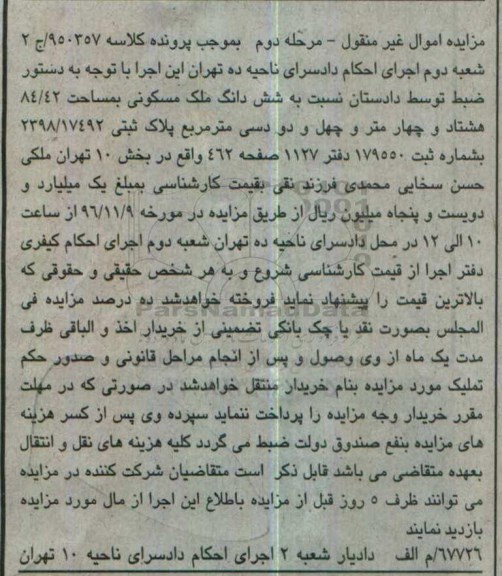 مزایده اموال غیر منقول – مرحله دوم بموجب پرونده کلاسه ۹۵۰۳۵۷/ج ۲
شعبه دوم اجرای احکام دادسرای ناحیه ده تهران این اجرا با توجه به دستور
ضبط توسط دادستان نسبت به شش دانگ ملک مسکونی بمساحت ۸٤/٤۲
هشتاد و چهار متر و چهل و دو دسی مترمربع پلاک ثبتی ۲۳۹۸/۱۷٤۹۲
بشماره ثبت ۱۷۹۵۵۰ دفتر ۱۱۲۷ صفحه ٤٦۲ واقع در بخش ۱۰ تهران ملکی
حسن سخایی محمدی فرزند نقی بقیمت کارشناسی بمبلغ یک میلیارد و
دویست و پنجاه میلیون ریال از طریق مزایده در مورخه ۹٦/۱۱/۹ از ساعت
۱۰ الی ۱۲ در محل دادسرای ناحیه ده تهران شعبه دوم اجرای احکام کیفری
دفتر اجرا از قیمت کارشناسی شروع و به هر شخص حقیقی و حقوقی که
بالاترین قیمت را پیشنهاد نماید فروخته خواهدشد ده درصد مزایده فی
المجلس بصورت نقد یا چک بانکی تضمینی از خریدار اخذ و الباقی ظرف
مدت یک ماه از وی وصول و پس از انجام مراحل قانونی و صدور حکم
تملیک مورد مزایده بنام خریدار منتقل خواهدشد در صورتی که در مهلت
مقرر خریدار وجه مزایده را پرداخت ننماید سپرده وی پس از کسر هزینه
های مزایده بنفع صندوق دولت ضبط می گردد کلیه هزینه های نقل و انتقال
بعهده متقاضی می باشد قابل ذکر است متقاضیان شرکت کننده در مزایده
می توانند ظرف ۵ روز قبل از مزایده باطلاع این اجرا از مال مورد مزایده
بازدید نمایند
٦۷۷۲٦/م الف دادیار شعبه ۲ اجرای احکام دادسرای ناحیه ۱۰ تهران
ParsNamadData